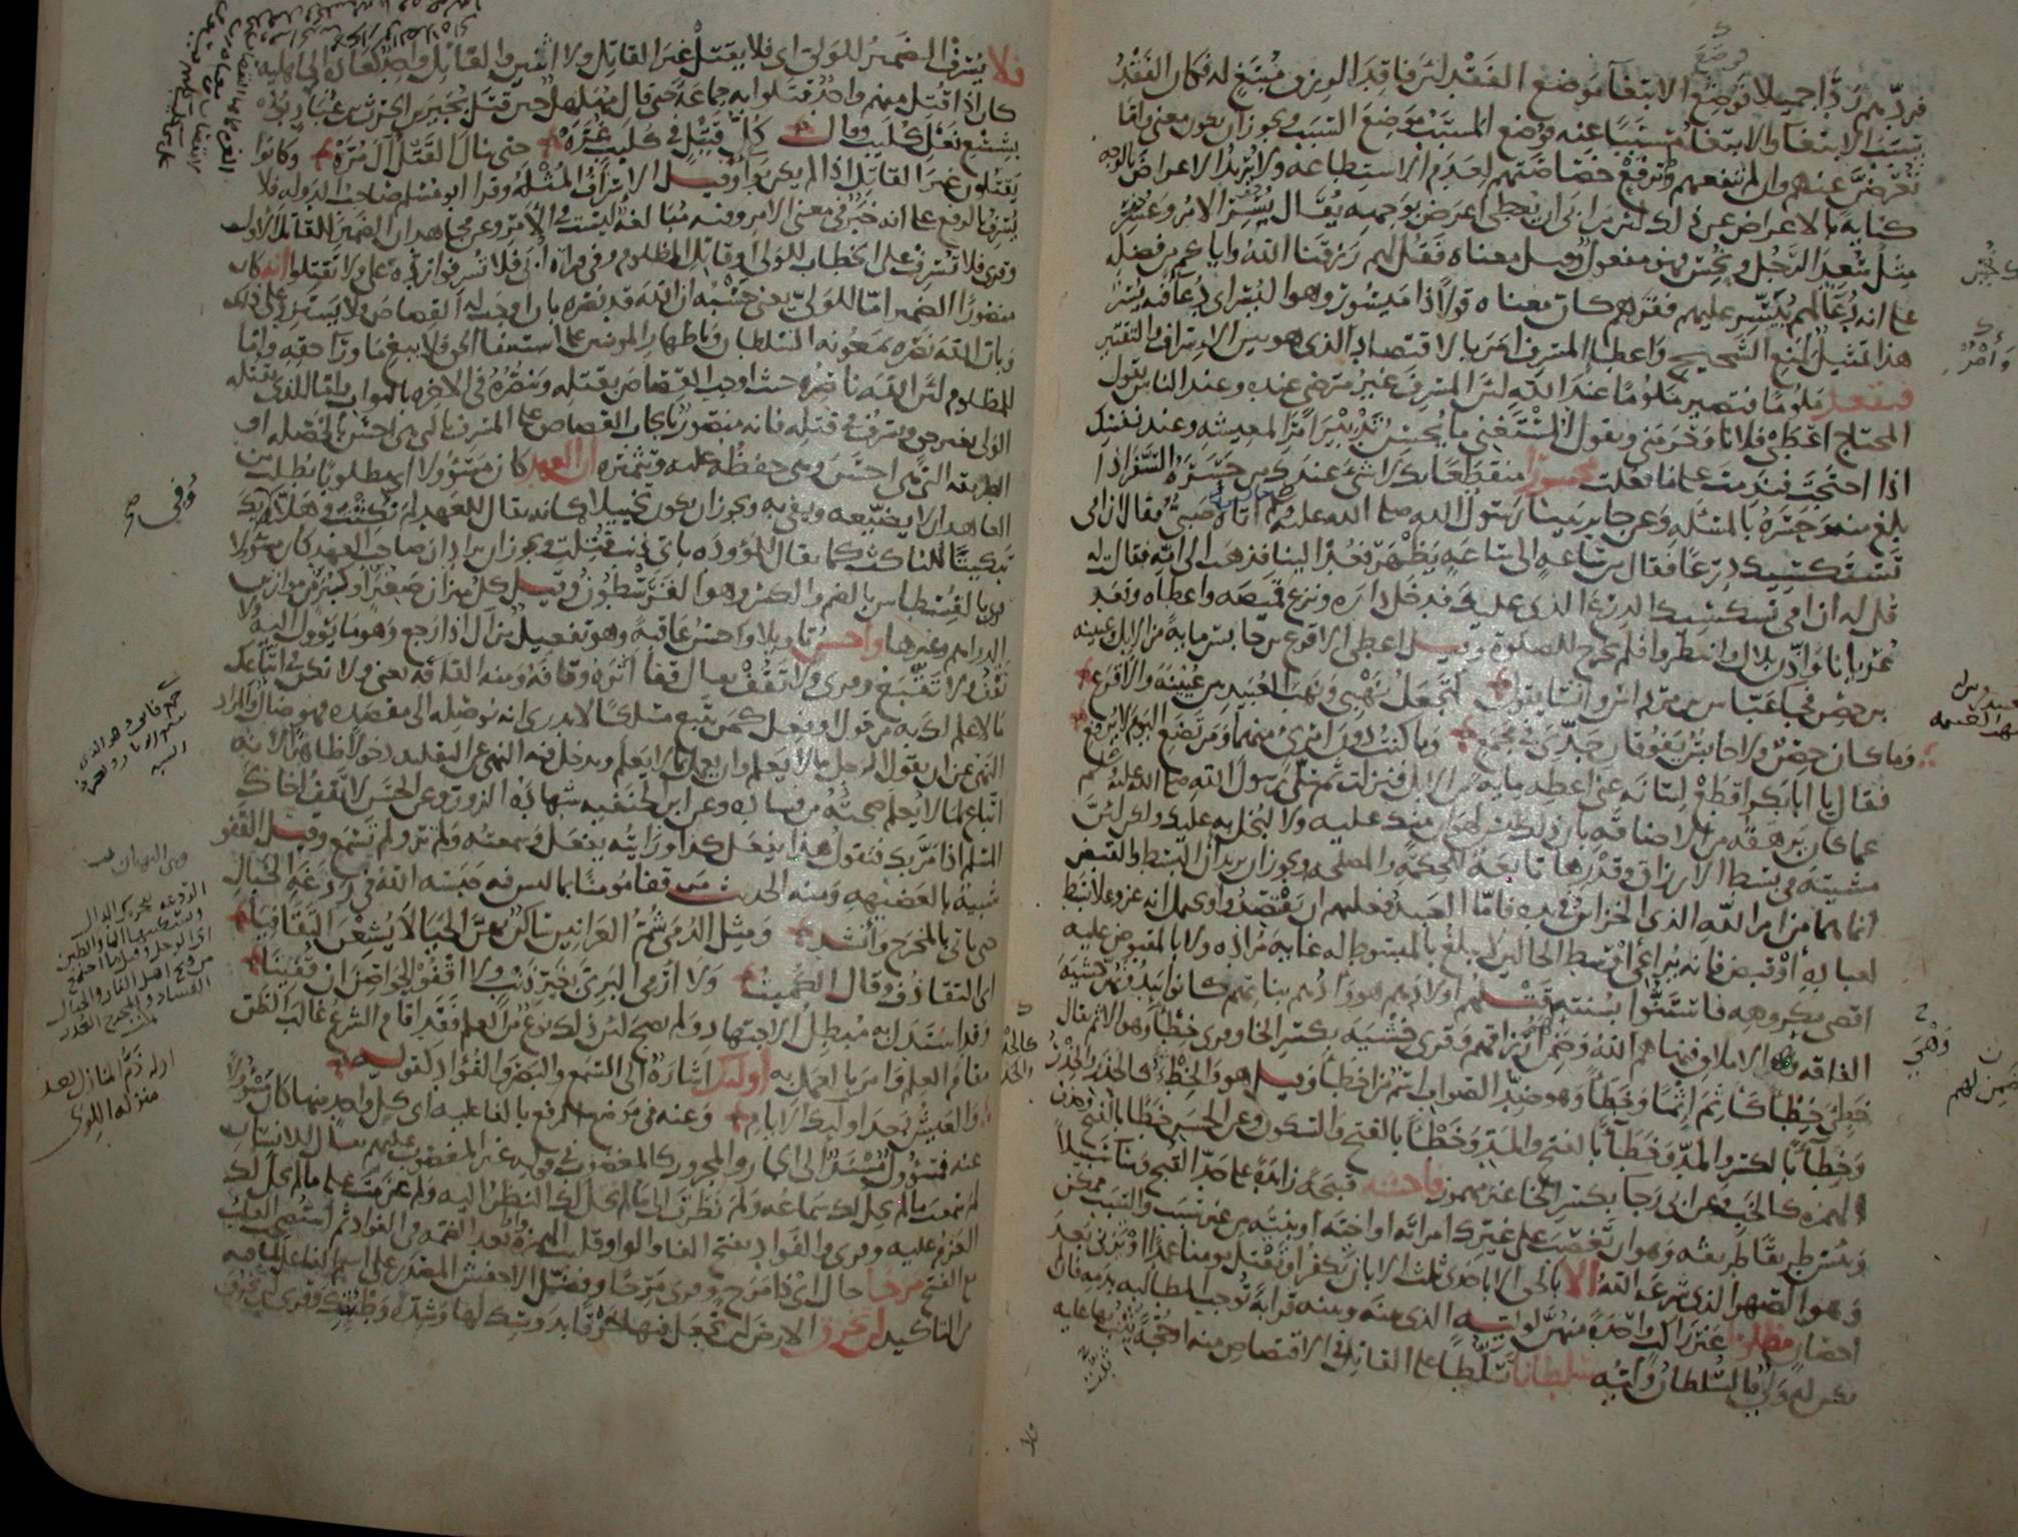 فردهم ردا جميلا فوضع الابتغا موضع الفقد لان فاقد الرزق مبتغ له فكان الفقد
سبب الابتغا والابتغا مسببا عنه فوضع المسبب موضع السبب ويجوز ان يكون معنى واما
تعرضن عنهم وان لم تنفعهم وترفع خصاصتهم لعدم الاستطاعه ولا يريد الاعراض بالوجه
كناية بالاعراض عن ذلك لان من ابى ان يعطى اعرض بوجهه يقال يسر الامر وعسر
مثل سعد الرجل ونحس فهو مفعول وقيل معناه فقل لهم رزقنا الله واياكم من فضله
على انه دعا لهم ييسر عليهم فقرهم كان معناه قولا ذا ميسور وهو اليسر اى دعا فيه يسر
هذا تمثيل لمنع الشحيح واعطا المسرف امر بالاقتصاد الذى هو بين الاسراف والتقتير
فتقعد ملوما فتصير ملوما عند الله لان المسرف غير مرضى عنده وعند الناس يقول
المحتاج اعطى فلانا وحرمنى ويقول المستغنى ما يحسن تدبير امر المعيشه وعند نفسك
اذا احتجت فندمت على ما فعلت محسورا منقطعا بك لا شى عندك من حسره السفر اذا
بلغ منه وحسره بالمسئله وعن جابر بينا رسول الله صلى الله عليه اتاه صبى فقال ان امى
تستكسيك درعا فقال من ساعه الى ساعه يظهر فعد الينا فذهب الى امه فقالت له
قل له ان امى تستكسيك الدرع الذى عليك فدخل داره ونزع قميصه واعطاه وقعد
عريانا واذن بلال وانتظروا فلم يخرج للصلوة وقيل اعطى الاقرع بن حابس مايه من الابل وعيينه
بن حصن فجا عباس بن مرداس وانشا يقول اتجعل نهبى ونهب العبيد بين عيينه والاقرع
وما كان حصن ولا حابس يفوقان جدى فى مجمع وما كنت دون امرى منهما ومن تضع اليوم لا يرفع
فقال يا ابا بكر اقطع لسانه عنى اعطه مايه من الابل فنزلت ثم سلى رسول الله صلى الله عليه وسلم
عما كان يرهقه من الاضاقه بان ذلك ليس لهوان منك عليه ولا لبخل به عليك ولكن لان
مشيته فى بسط الارزاق وقدرها تابعة للحكمة والمصلحه ويجوز ان يريد ان البسط والقبض
انما هما من امر الله الذى الخزائن فى يده فاما العبيد فعليهم ان يقتصدوا ويحتمل انه عز وعلا بسط
لعباده او قبض فانه يراعى اوسط الحالين لا يبلغ بالمبسوط له غايه مراده ولا بالمقبوض عليه
اقصى مكروهه فاستنوا بسنته قتلهم اولادهم هو وادهم بناتهم كانوا يئدونهن خشية
الفاقه وهى الاملاق فنهاهم الله وضمن لهم ارزاقهم وقرى خشية بكسر الخا وقرى خطأ وهو الاثم يقال
خطئ خطأ كاثم اثما وخطأ وهو ضد الصواب اسم من اخطأ وقيل هو والخطء كالحذر والحذر
وخطاء بالكسر والمد وخطاء بالفتح والمد وخطأ بالفتح والسكون وعن الحسن خطا بالفتح وحذف
الهمزه كالخب وعن ابى رجا بكسر الخا غير مهموز فاحشه قبيحة زائدة على حد القبح وساء سبيلا
وبئس طريقا طريقه وهو ان تغصب على غيرك امراته او اخته او بنته من غير سبب والسبب ممكن
وهو الصهر الذى شرعه الله الا بالحق الا باحدى ثلث الا بان تكفر او تقتل مومنا عمدا او تزنى بعد
احصان مظلوما غير راكب واحدة منهن لوليه الذى بينه وبينه قرابة توجب المطالبه بدمه فان
لم يكن له ولى فالسلطان وليه سلطانا تسلطا على القاتل فى الاقتصاص منه او حجة يثب بها عليه
فلا يسرف الضمير للولى اى فلا يقتل غير القاتل ولا اثنين والقاتل واحد كعادة الجاهليه
كان اذا قتل منهم واحد قتلوا به جماعة حتى قال مهلهل حين قتل بجير بن الحرث بن عباد بؤ
بشسع نعل كليب وقال كل قتيل فى كليب غره حتى ينال القتل آل مره وكانوا
يقتلون غير القاتل اذا لم يكن بواء وقيل الاسراف المثلة وقرا ابو مسلم صاحب الدوله فلا
يسرف بالرفع على انه خبر فى معنى الامر وفيه مبالغة ليست فى الامر وعن مجاهد ان الضمير للقاتل الاول
وقرى فلا تسرف على الخطاب للولى او قاتل المظلوم وفى قراة ابى فلا تسرفوا رده على ولا تقتلوا انه كان
منصورا الضمير اما للولى يعنى حسبه ان الله قد نصره بان اوجب له القصاص فلا يستزد على ذلك
وبان الله نصره بمعونه السلطان وباظهار المومنين على استيفا الحق فلا يبغ ما وراء حقه واما
للمظلوم لان الله ناصره حيث اوجب القصاص بقتله وينصره فى الاخره بالثواب واما للذى يقتله
الولى بغير حق ويسرف فى قتله فانه منصور بايجاب القصاص على المسرف بالتى هى احسن بالخصله او
الطريقه التى هى احسن وهى حفظه عليه وتثميره ان العهد كان مسؤولا اى مطلوبا يطلب من
المعاهد ان لا يضيعه ويفى به ويجوز ان يكون تخييلا كانه يقال للعهد لم نكثت وهلا وفى بك
تبكيتا للناكث كما يقال للموؤدة باى ذنب قتلت ويجوز ان يراد ان صاحب العهد كان مسؤولا
قرى بالقسطاس بالضم والكسر وهو القرسطون وقيل كل ميزان صغيرا او كبيرا من موازين
الدراهم وغيرها واحسن تاويلا واحسن عاقبة وهو تفعيل من آل اذا رجع وهو ما يؤول اليه ولا
تقف ولا تتبع وقرى ولا تقف يقال قفا اثره وقافه ومنه القافه يعنى ولا تكن فى اتباعك
ما لا علم لك به من قول او فعل كمن يتبع مسلكا لا يدرى انه يوصله الى مقصده فهو ضال والمراد
النهى عن ان يقول الرجل ما لا يعلم وان يعمل بما لا يعلم ويدخل فيه النهى عن التقليد دخولا ظاهرا لانه
اتباع لما لا يعلم صحته من فساده وعن ابن الحنفيه شهادة الزور وعن الحسن لا تقف اخاك
المسلم اذا مر بك فتقول هذا يفعل كذا ورايته يفعل وسمعته ولم تر ولم تسمع وقيل القفو
شبيه بالعضيهه ومنه الحديث من قفا مومنا بما ليس فيه حبسه الله فى ردغة الخبال
حتى ياتى بالمخرج وانشد ومثل الدمى شم العرانين ساكن بهن الحيا لا يشعن التقافيا
اى التقاذف وقال الكميت ولا ارمى البرى بغير ذنب ولا اقفو الحواصن ان قفينا
وقد استدل به مبطل الاجتهاد ولم يصح لان ذلك نوع من العلم فقد اقام الشرع غالب الظن
مقام العلم وامر بالعمل به اولئك اشارة الى السمع والبصر والفؤاد كقوله
والعيش بعد اولئك الايام وعنه فى موضع الرفع بالفاعليه اى كل واحد منها كان مسؤولا
عنه فمسؤول مسند الى الجار والمجرور كالمغضوب فى قوله غير المغضوب عليهم يقال للانسان
لم سمعت ما لم يحل لك سماعه ولم نظرت الى ما لم يحل لك النظر اليه ولم عزمت على ما لم يحل لك
العزم عليه وقرى والفواد بفتح الفا والواو قلبت الهمزة واوا بعد الضمه فى الفؤاد ثم استصحب القلب
مع الفتح مرحا حال اى ذا مرح وقرى مرحا وفضل الاخفش المصدر على اسم الفاعل لما فيه
من التاكيد لن تخرق الارض لن تجعل فيها خرقا بدوسك لها وشدة وطئتك وقرى